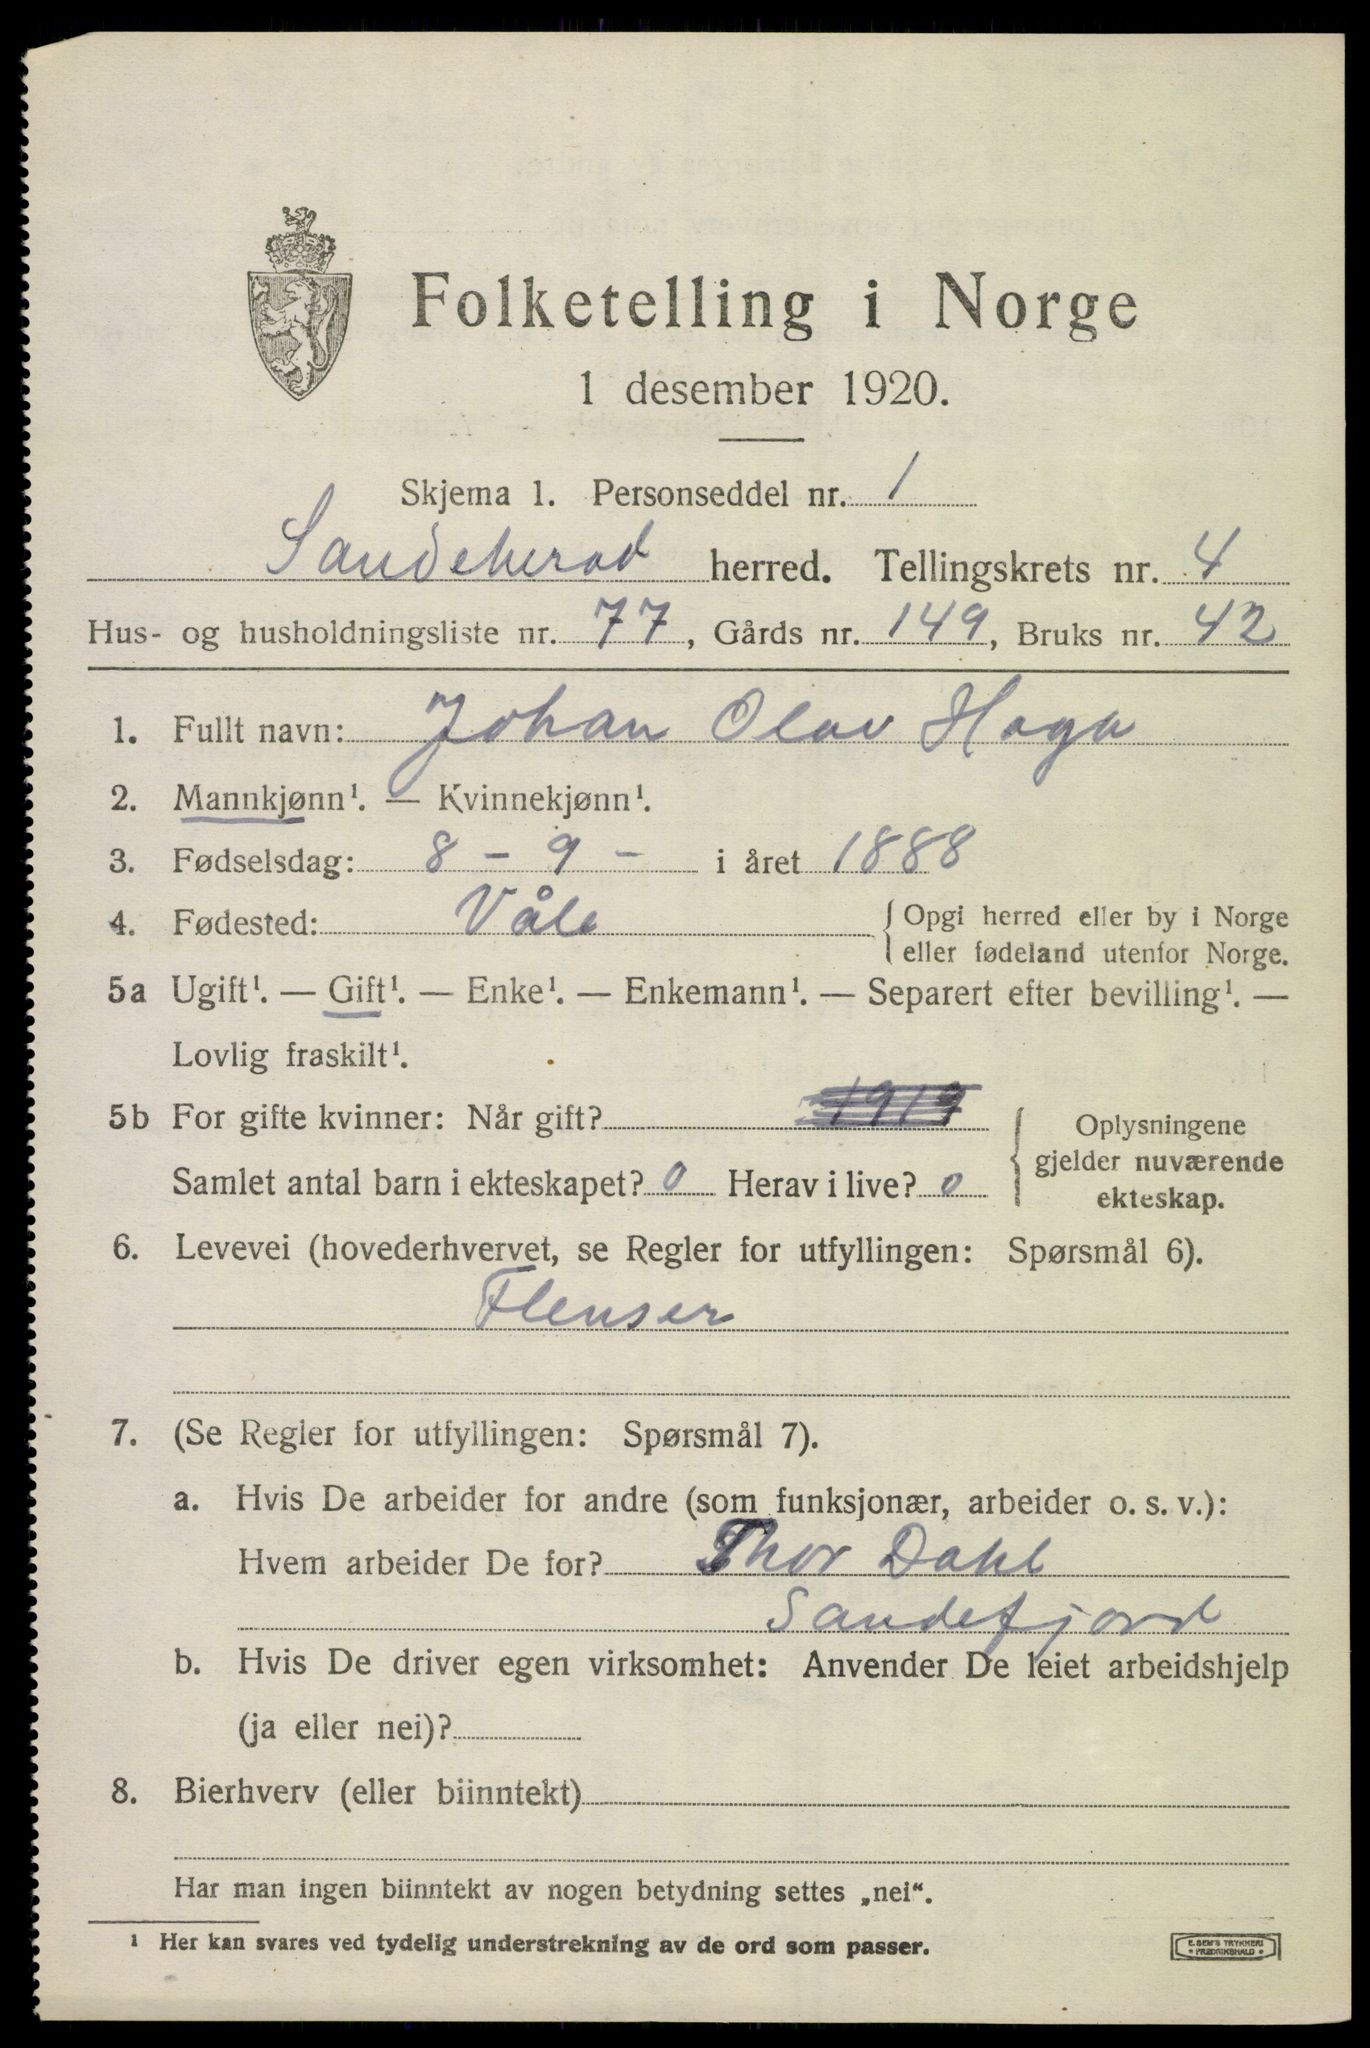 Folketelling i Norge
1 desember 1920.
Skjema 1. Personseddel nr. 1
Sandeherad herred. Tellingskrets nr. 4
Hus- og husholdningsliste nr. 77, Gårds nr. 149, Bruks nr. 42
1. Fullt navn: Johan Olav Haga
2. Mannkjønn¹. — Kvinnekjønn¹.
3. Fødselsdag: 8 - 9 - i året 1888
4. Fødested: Våle { Opgi herred eller by i Norge
eller fødeland utenfor Norge.
5a Ugift¹. — Gift¹. — Enke¹. — Enkemann¹. — Separert efter bevilling¹. —
Lovlig fraskilt¹.
5b For gifte kvinner: Når gift? 1919
Samlet antal barn i ekteskapet? 0 Herav i live? 0
{ Oplysningene
gjelder nuværende
ekteskap.
6. Levevei (hovederhvervet, se Regler for utfyllingen: Spørsmål 6).
Flenser
7. (Se Regler for utfyllingen: Spørsmål 7).
a. Hvis De arbeider for andre (som funksjonær, arbeider o. s. v.):
Hvem arbeider De for? Thor Dahl
Sandefjord
b. Hvis De driver egen virksomhet: Anvender De leiet arbeidshjelp
(ja eller nei)?
8. Bierhverv (eller biinntekt)
Har man ingen biinntekt av nogen betydning settes „nei“.
¹ Her kan svares ved tydelig understrekning av de ord som passer.
E. SEM'S TRYKKERI
• FREDRIKSHALD •